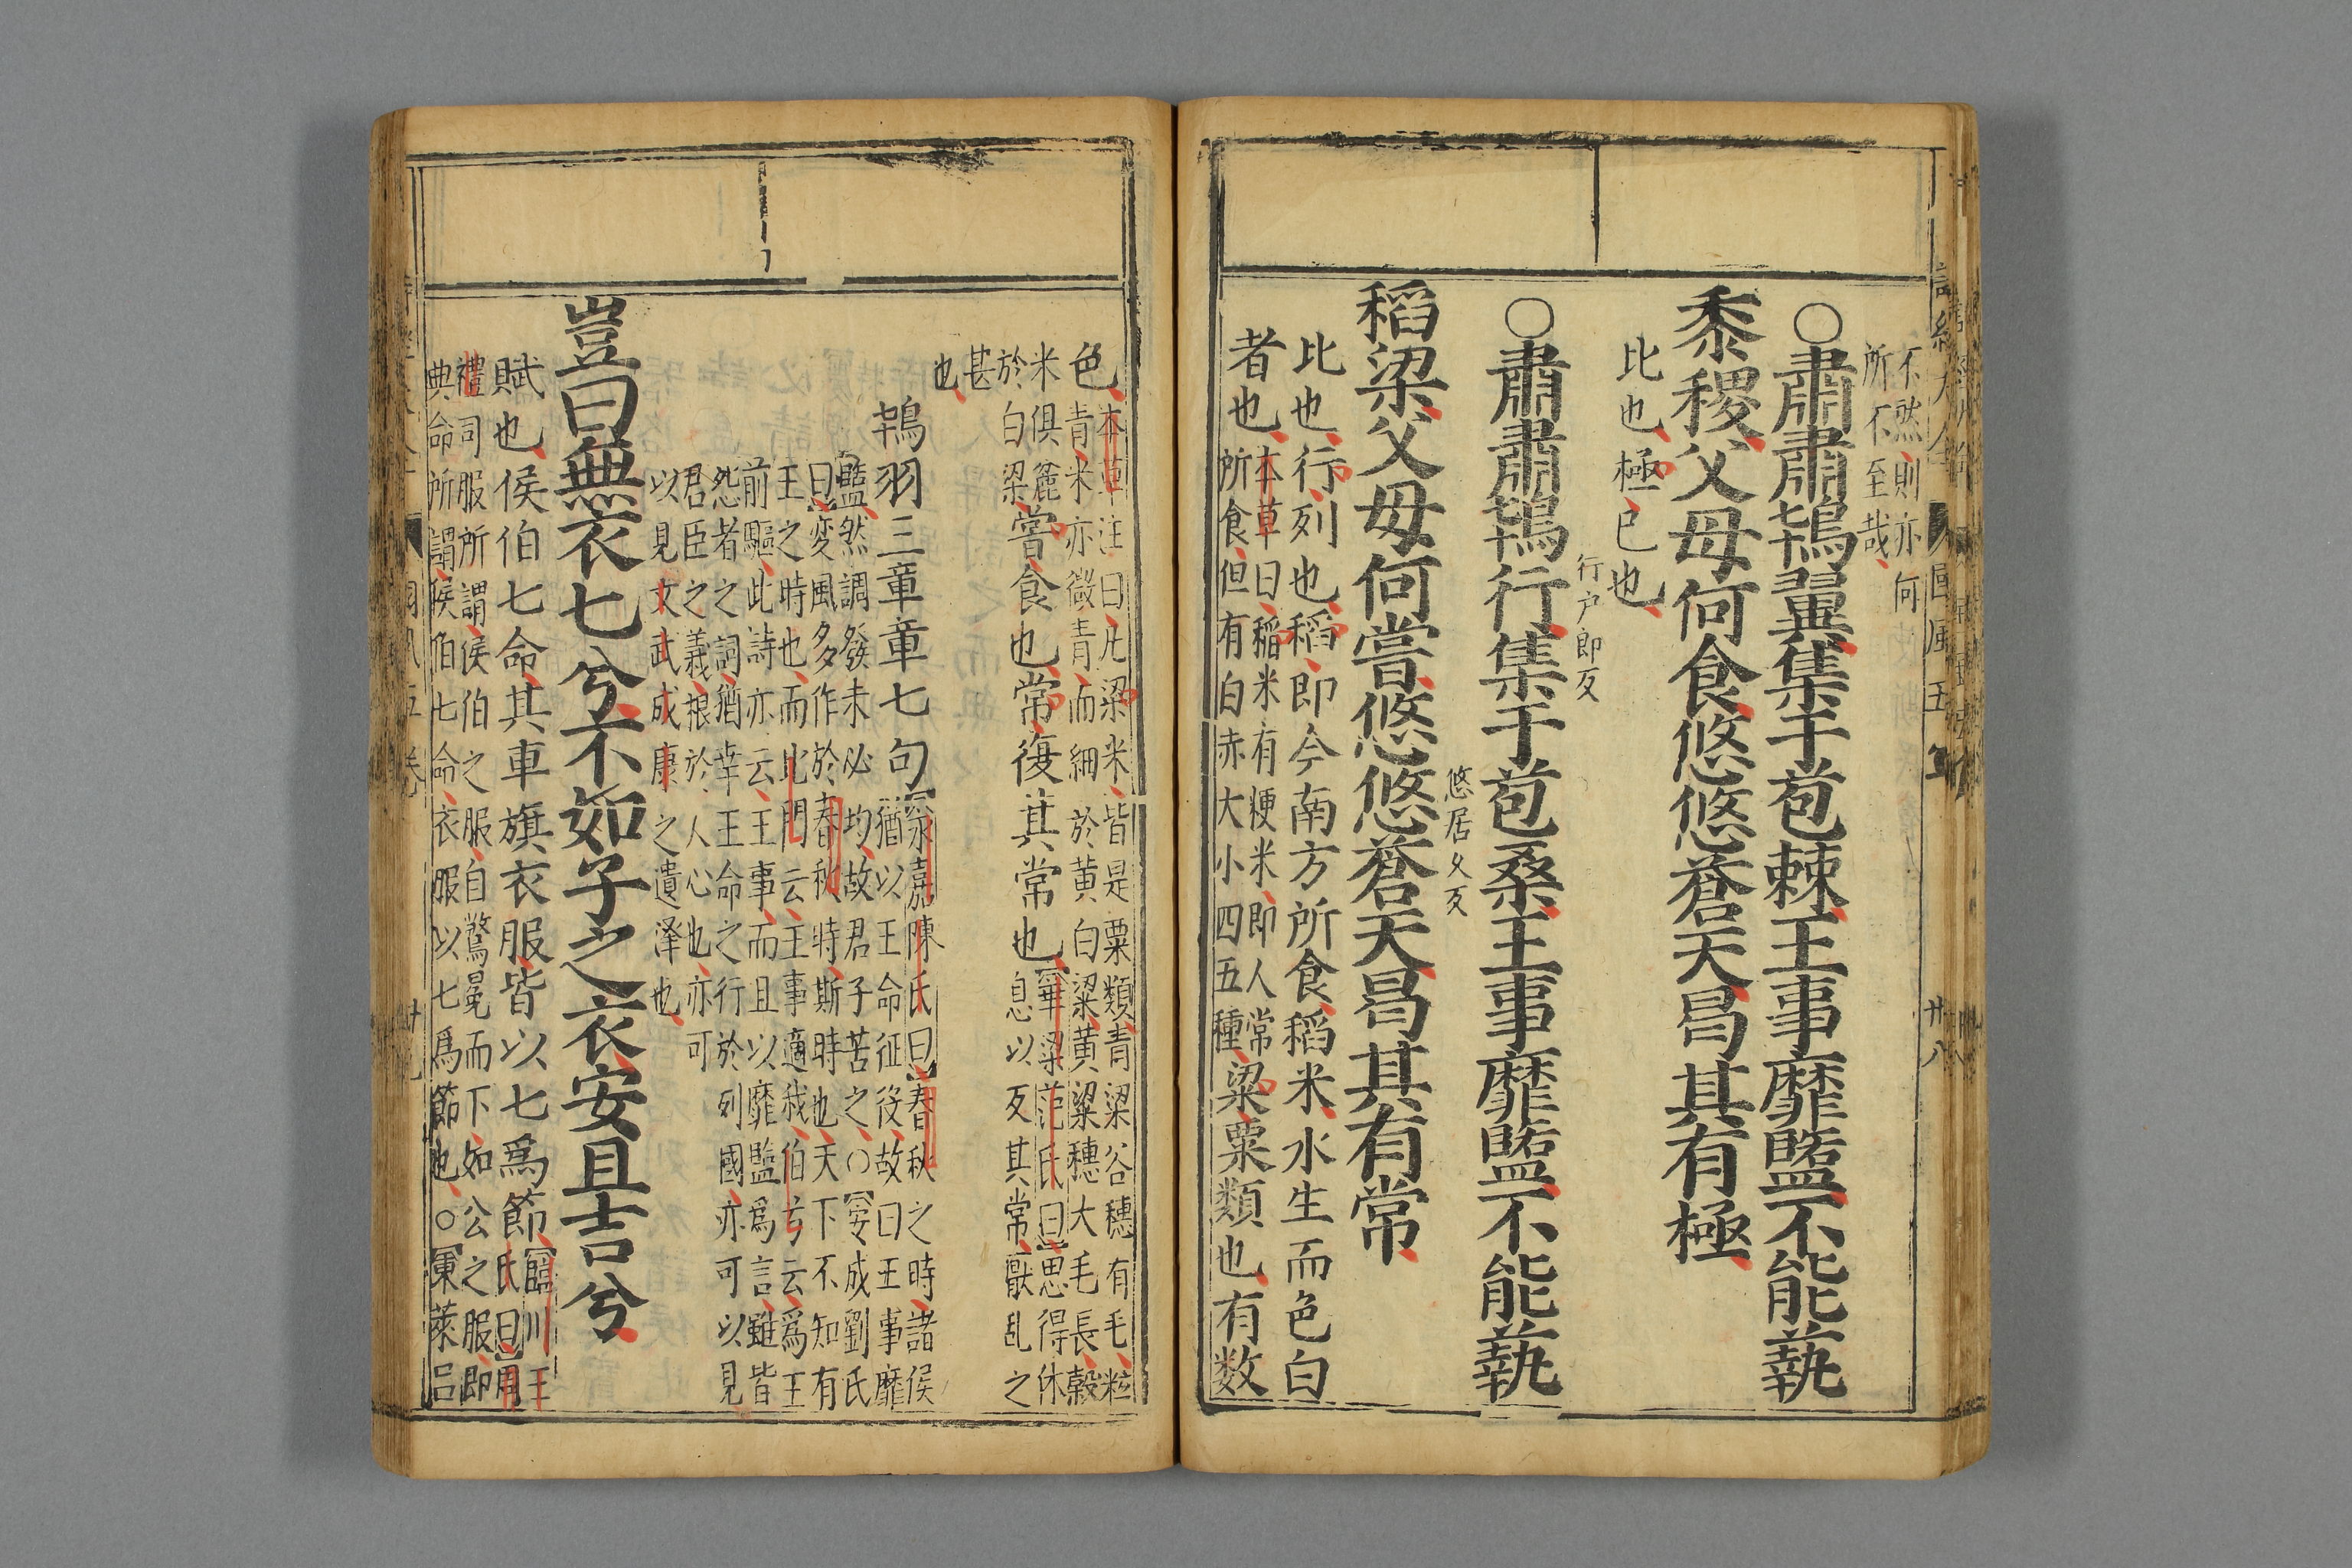 不然則亦何
所不至哉
○肅肅鴇翼集于苞棘王事靡盬不能蓺
黍稷父母何食悠悠蒼天曷其有極
比也極已也
○肅肅鴇行集于苞桑王事靡盬不能蓺
行户郎反
稻梁父母何嘗悠悠蒼天曷其有常
比也行列也稻即今南方所食稻米水生而色白
者也
本草曰稻米有粳米即人常
所食但有白赤大小四五種
粱粟類也有数
色
本草注曰凡粱米皆是粟類青粱谷穗有毛粒
青米亦微青而細於黄白粱黄粱穗大毛長穀
米俱麄
於白粱
嘗食也常復其常也
華梁范氏曰思得休
息以反其常厭乱之
甚
也
鴇羽三章章七句
永嘉陳氏曰春秋之時諸侯
猶以王命征役故曰王事靡
盬然調發未必均故君子苦之○安成劉氏
曰変風多作於春秋時斯時也天下不知有
王之時也而北門云王事適我伯兮云爲王
前驅此詩亦云王事而且以靡盬爲言雖皆
怨者之詞猶幸王命之行於列國亦可以見
君臣之義根於人心也亦可
以見文武成康之遺澤也
豈曰無衣七兮不如子之衣安且吉兮
賦也侯伯七命其車旗衣服皆以七爲節
臨川王
氏曰周
禮司服所謂侯伯之服自鷩冕而下如公之服即
典命所謂侯伯七命衣服以七爲節也○東萊呂